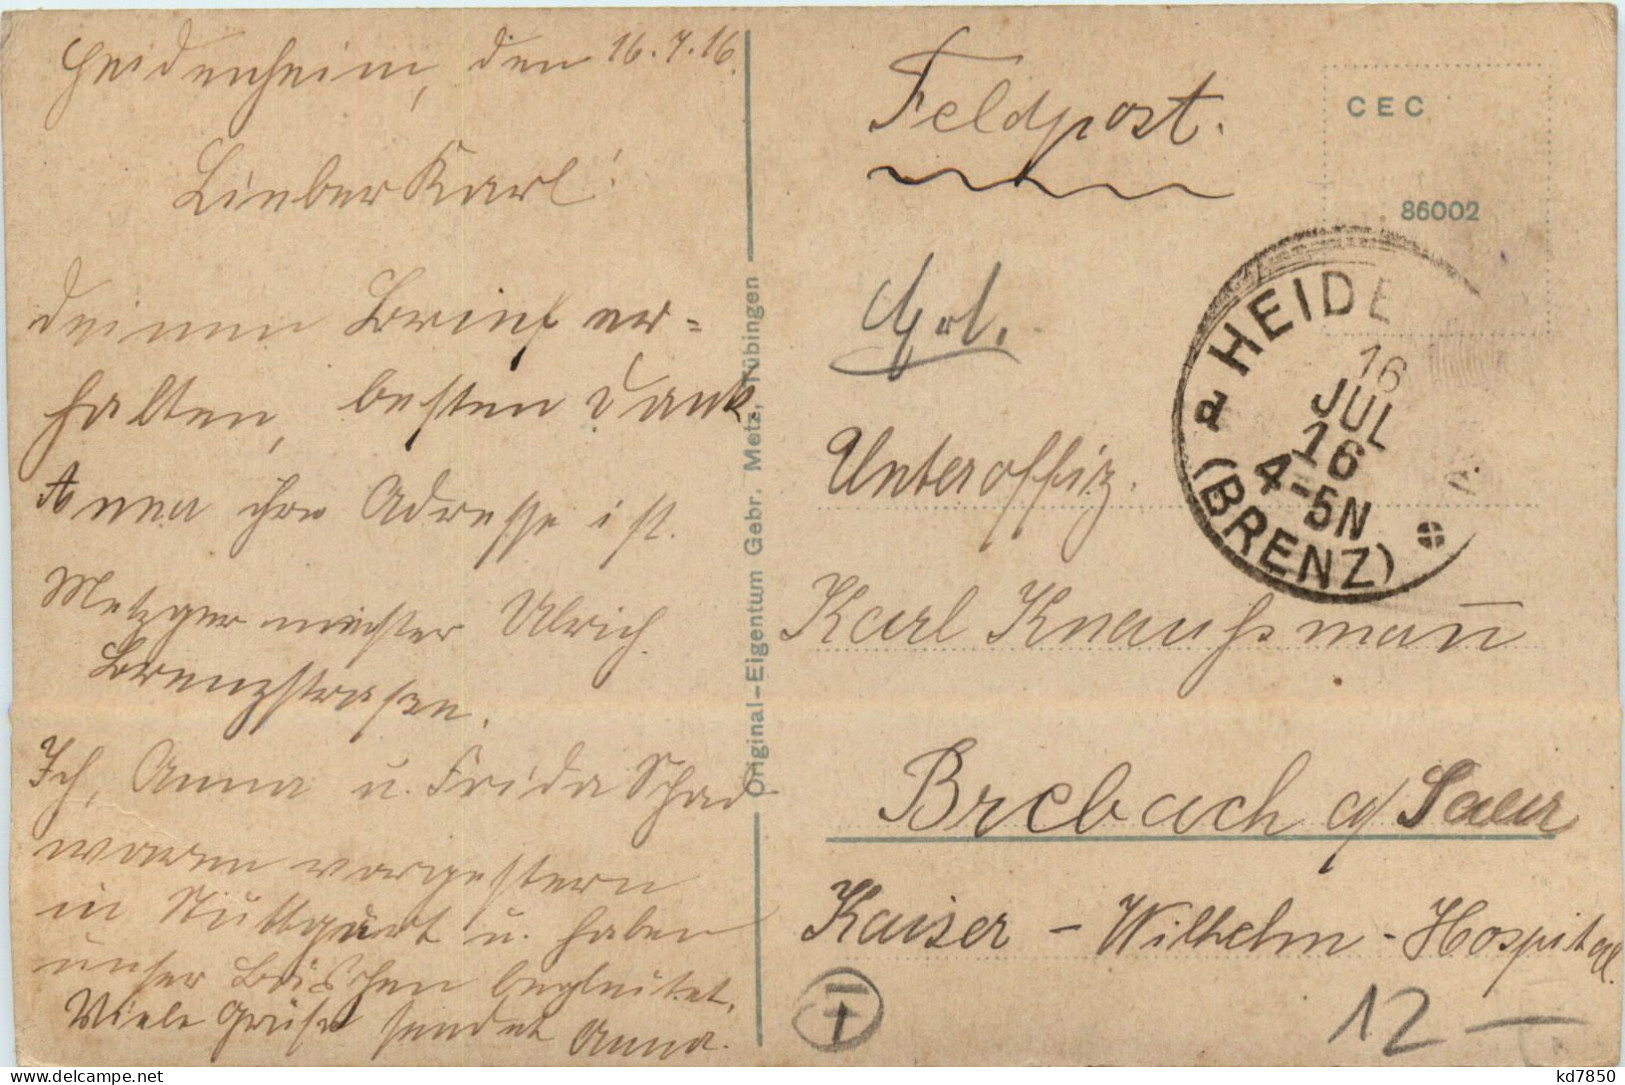 Heidenheim, den 16.7.16.
Lieber Karl!
deinen Brief er=
halten, besten Dank.
Anna ihre Adresse ist.
Metzgermeister Ulrich.
Brenzstraßen.
Ich, Anna u. Frida Schad
waren vorgestern
in Stuttgart u. haben
unser begleitet.
Viele Grüße sendet Anna.
Original-Eigentum Gebr. Metz, Tübingen
Feldpost.
CEC
86002
HEIDE
16
JUL
16
4-5N
(BRENZ)
Unteroffiz.
Karl Knaußmann
Brebach a/Saar
Kaiser-Wilhelm-Hospital.
12 —
kd7850